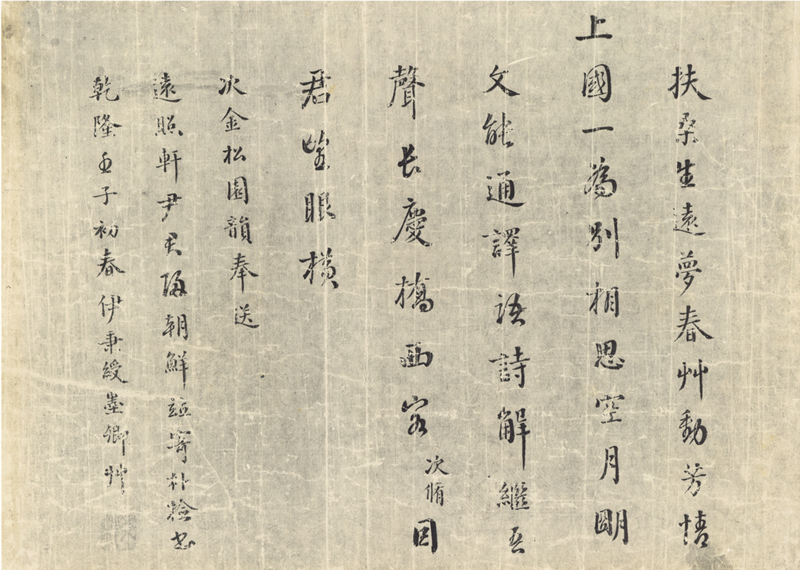 扶桑生遠夢春艸動芳情
上國一為別相思空月朙
文能通譯語詩解繼吾
聲長慶橋西客次脩因
君望眼橫
次金松園韻奉送
遠照軒尹君歸朝鮮並寄朴檢書
乾隆壬子初春伊秉綬墨卿艸